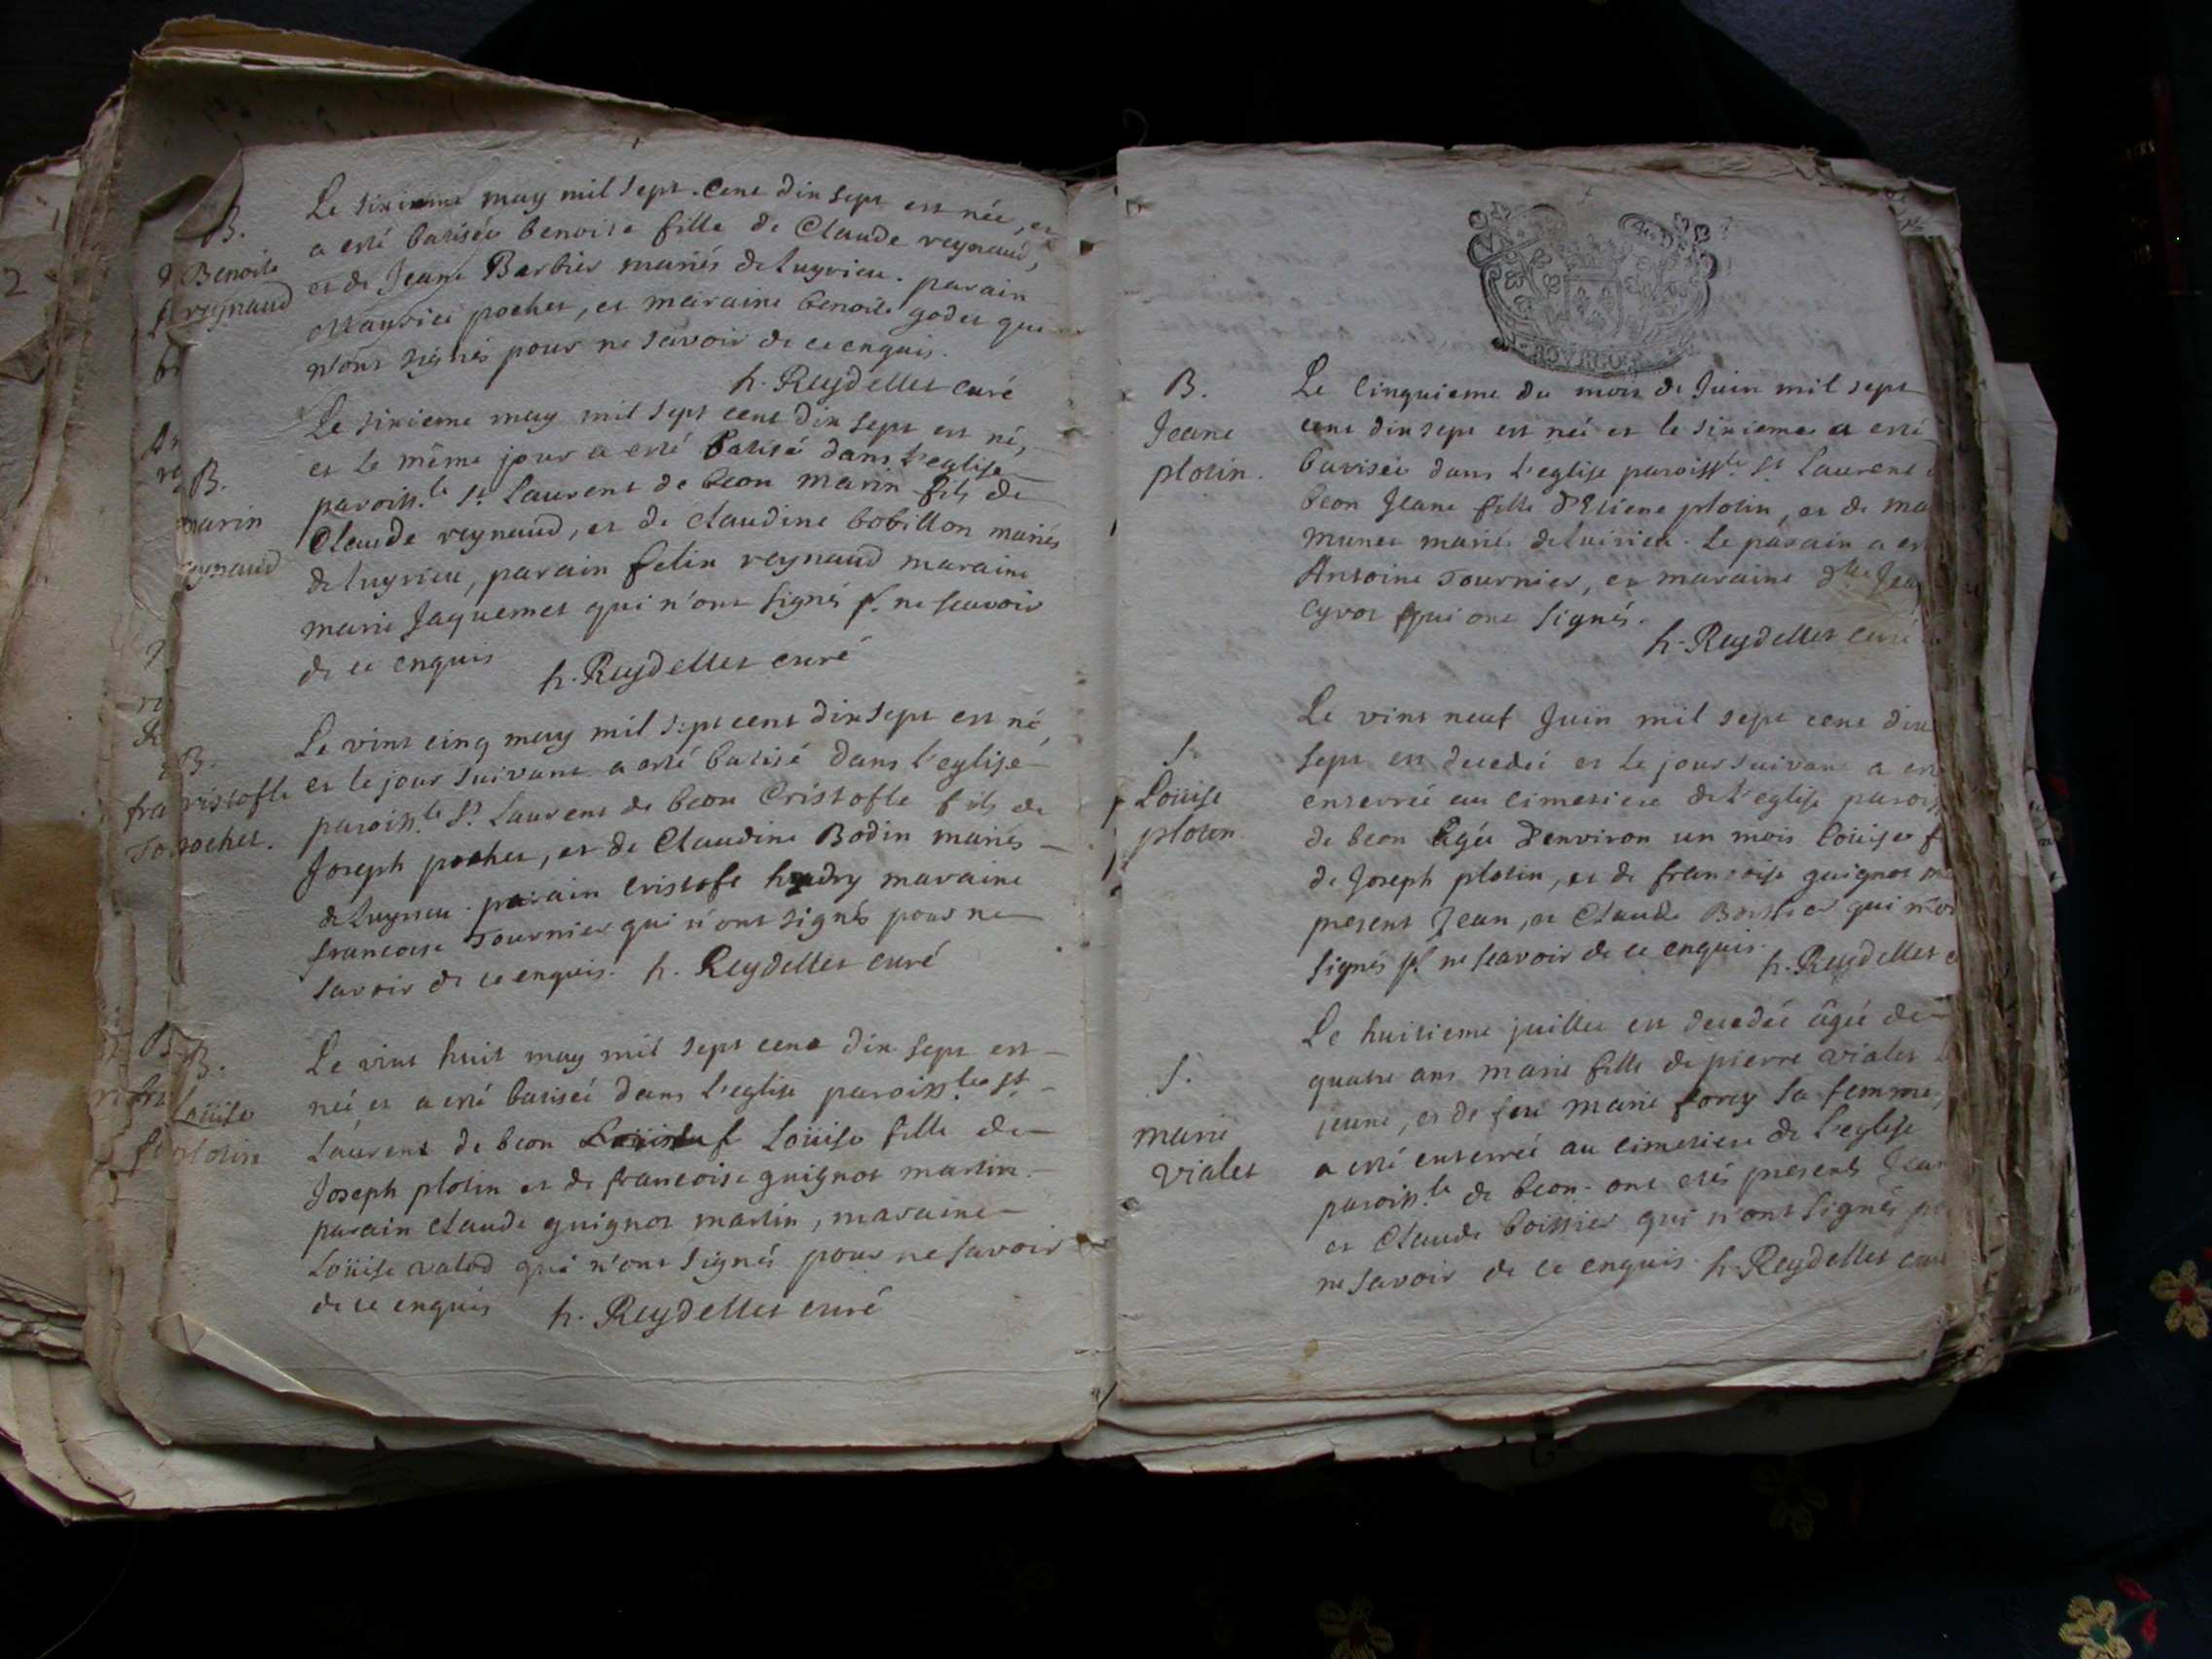 B.
Benoite
reynaud
Le sixieme may mil sept. Cent dix sept est née, et
a esté batisée benoite fille de Claude reynaud,
et de Jeane Barbier mariés de Luyrieu. parain
Maurice pochet, et maraine benoite godet qui
n'ont signés pour ne savoir de ce enquis.
h. Reydellet curé
B.
marin
reynaud
Le sixieme may mil sept cent dix sept est né,
et le même jour a esté batisé dans l'eglise
paroiss.le St. Laurent de beon marin fils de
Claude reynaud, et de claudine bobillon mariés
de luyrieu, parain felix reynaud maraine
marie Jaquemet qui n'ont signés p. ne scavoir
de ce enquis
h. Reydellet curé
B.
Cristofle
pochet.
Le vint cinq may mil sept cent dix sept est né,
et le jour suivant a esté batisé dans l'eglise
paroiss.le St. Laurent de beon Cristofle fils de
Joseph pochet, et de Claudine Bodin mariés
de Luyrieu. parain Cristofe hudry maraine
francoise Tournier qui n'ont signés pour ne
savoir de ce enquis. h. Reydellet curé
B.
Loüise
plotin
Le vint huit may mil sept cent dix sept est
neé et a esté batiseé dans l'eglise paroiss.le St.
Laurent de beon Loüise fille de
Joseph plotin et de francoise guignot martin.
parain claude guignot martin, maraine
Loüise valod qui n'ont signés pour ne savoir
de ce enquis h. Reydellet curé
BOURGO
B.
Jeane
plotin.
Le Cinquieme du mois de Juin mil sept
cent dix sept est neé et le sixieme a esté
batiseé dans l'eglise paroiss.le St. Laurent
beon Jeane fille d'Etiene plotin, et de ma
munet mariés de Luirieu. Le parain a es
Antoine Tournier, et maraine dlle Jea
Cyvot qui ont signés.
h. Reydellet curé
S.
Loüise
plotin
Le vint neuf Juin mil sept cent dix
sept est decedeé et le jour suivant a es
enterreé au cimetiere de l'eglise parois
de beon ageé d'environ un mois Loüise f
de Joseph plotin, et de francoise guignot m
present Jean, et Claude Boissier qui n'on
signés p. ne scavoir de ce enquis. h. Reydellet c
S.
marie
vialet
Le huitieme juillet est decedeé âgeé de
quatre ans marie fille de pierre vialet le
jeune, et de feu marie forey sa femme,
a esté enterreé au cimetiere de l'eglise
paroiss.le de beon. ont etés presents Jean
et Claude boissier qui n'ont signés po
ne savoir de ce enquis. h. Reydellet cur